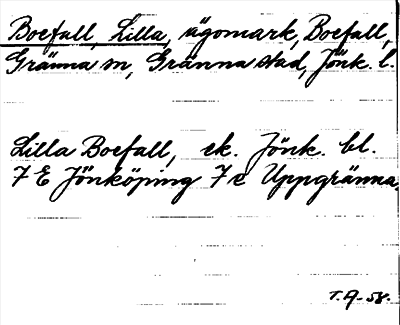 Boefall, Lilla, ägomark, Boefall,
Gränna sn, Gränna stad, Jönk. l.
Lilla Boefall, ek. Jönk. bl.
7 E Jönköping 7 e Uppgränna,
T.A-58.